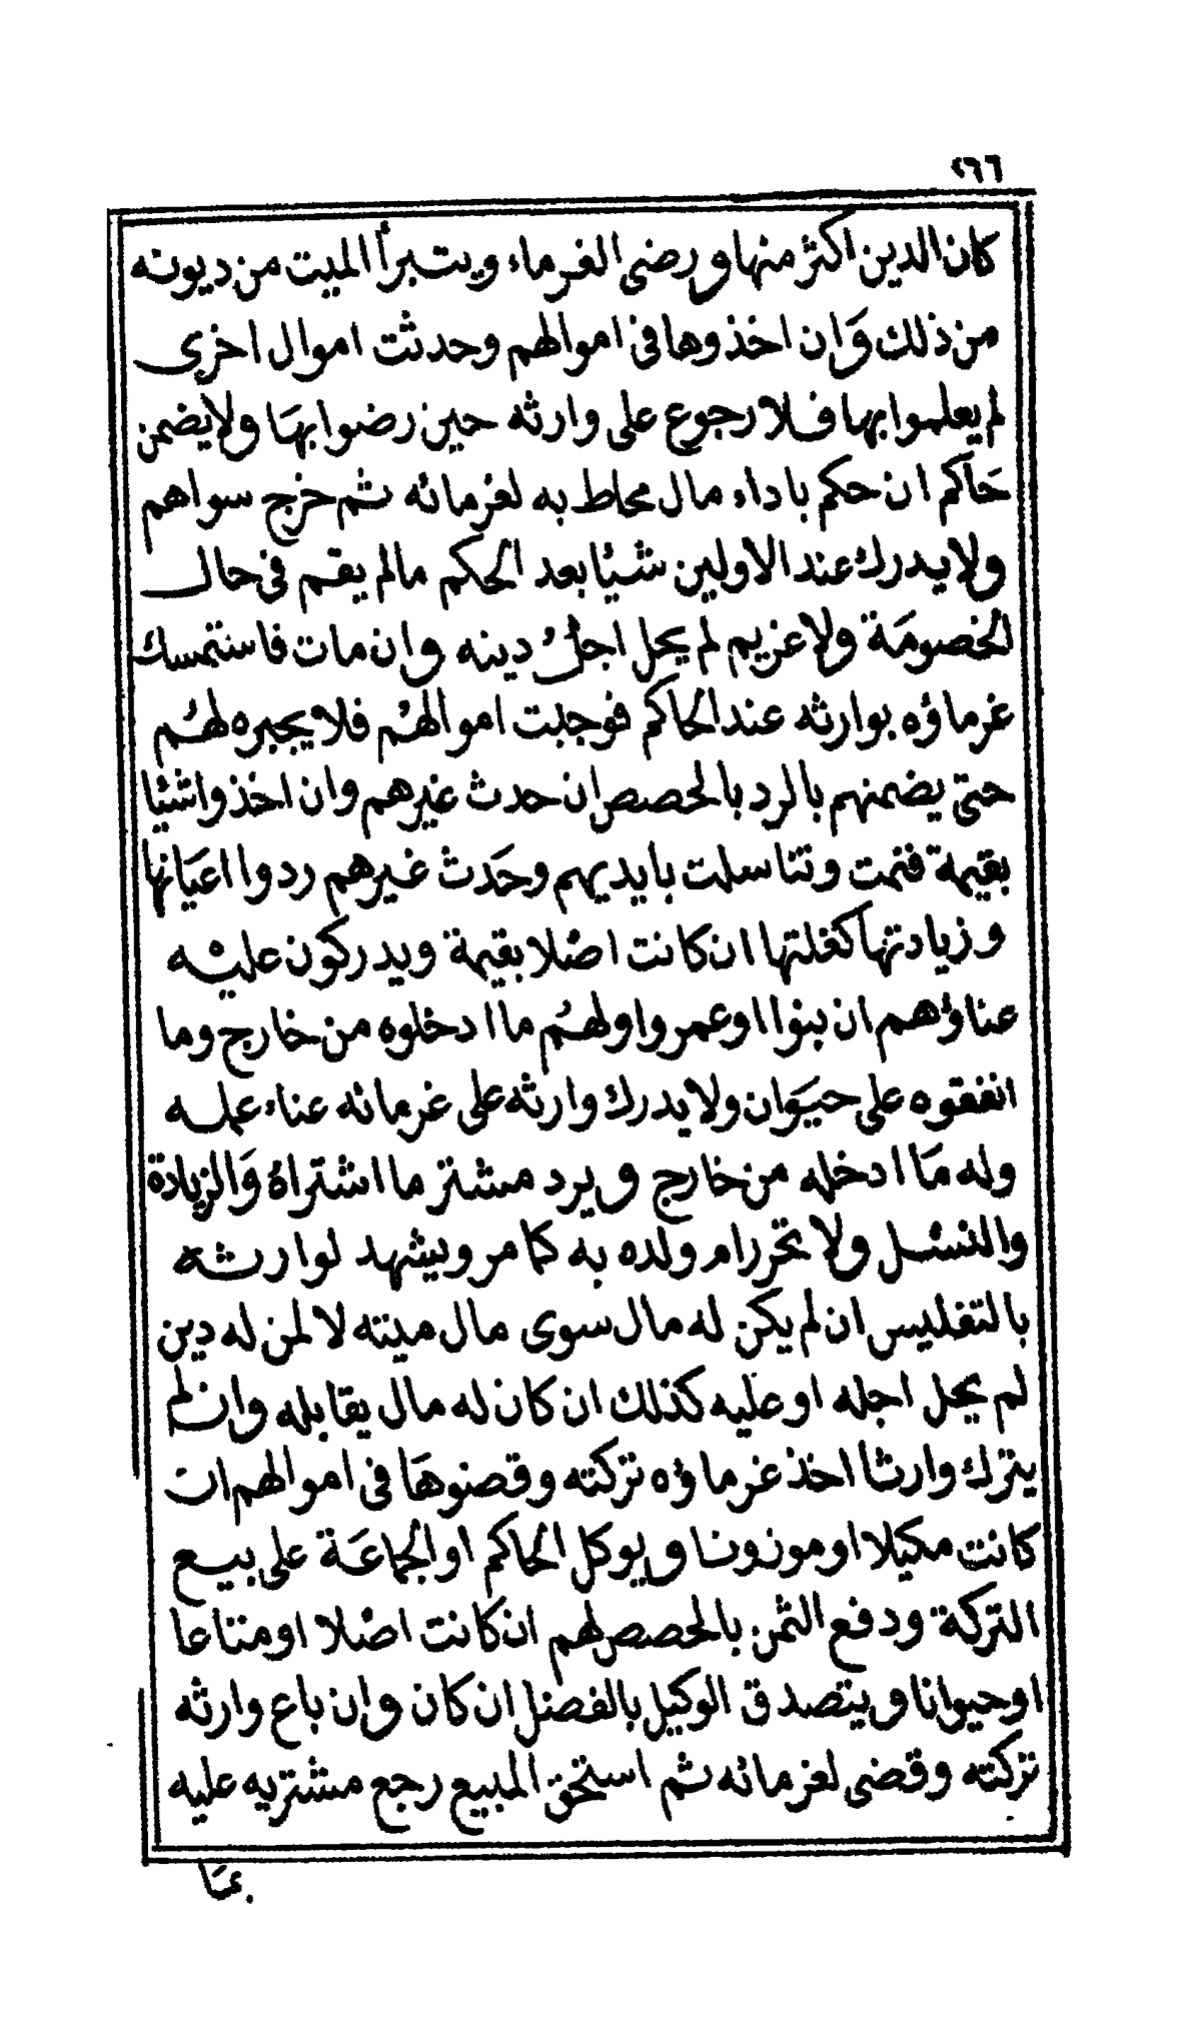 ٢٦٦
كان الدين اكثر منها و رضى الغرماء ويتبرأ الميت من ديونه
من ذلك وَان اخذوها فى اموالهم وحدثت اموال اخرى
لم يعلموا بها فلا رجوع على وارثه حين رضوا بهَا ولا يضمن
حَاكم ان حكم باداء مال محاط به لغرمائه ثم خرج سواهم
ولا يدرك عند الاولين شيئا بعد الحكم مالم يقم فى حال
الخصومَة ولا غريم لم يحل اجل دينه وان مات فاستمسك
غرماؤه بوارثه عند الحاكم فوجبت اموالهم فلا يجبره لهم
حتى يضمنهم بالرد بالحصص ان حدث غيرهم وان اخذوا شيئا
بقيمة فنمت وتناسلت بايديهم وحَدث غيرهم ردوا اعيَانها
وزيادتها كغلتها ان كانت اصْلا بقيمة ويدركون عليه
عناؤهم ان بنوا او عمروا ولهُم ما ادخلوه من خارج وما
انفقوه على حيَوان ولا يدرك وارثه على غرمائه عناء عمله
وله مَا ادخله من خارج ويرد مشتر ما اشتراهُ وَالزيادة
والنسْل ولا تحرر ام ولده به كما مر ويشهد لوارثه
بالتفليس ان لم يكن له مال سوى مال ميته لا لمن له دين
لم يحل اجله او عليه كذلك ان كان له مال يقابله وان لم
يترك وارثا اخذ غرماؤه تركته وقضوهَا فى اموالهم ان
كانت مكيلا او موزونا ويوكل الحاكم او الجماعَة على بيع
التركة ودفع الثمن بالحصص لهم ان كانت اصْلا او متاعا
او حيوانا ويتصدق الوكيل بالفضل ان كان وان باع وارثه
تركته وقضى لغرمائه ثم استحق المبيع رجع مشتريه عليه
بمَا